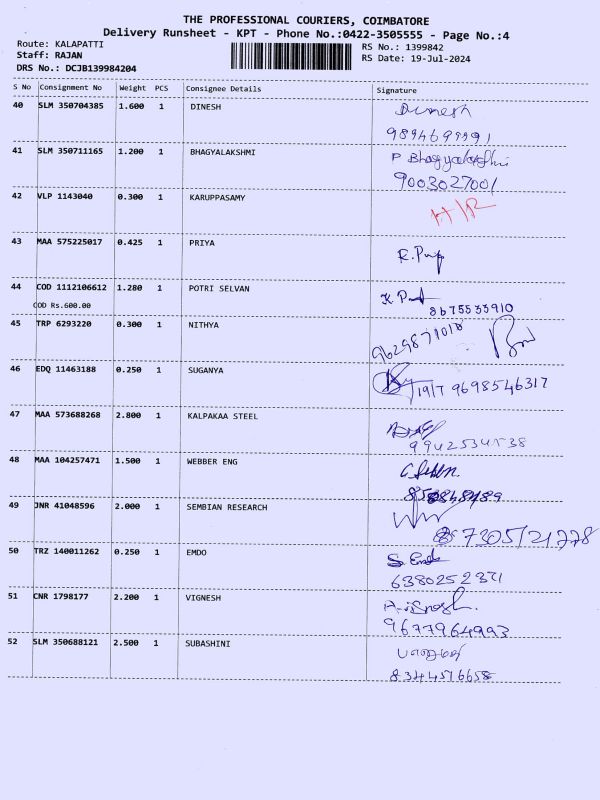 THE PROFESSIONAL COURIERS, COIMBATORE
Delivery Runsheet - KPT - Phone No.:0422-3505555 - Page No.:4
Route: KALAPATTI
Staff: RAJAN
DRS No.: DCJB139984204
RS No.: 1399842
RS Date: 19-Jul-2024
S No Consignment No Weight PCS Consignee Details Signature
40 SLM 350704385 1.600 1 DINESH Dinesh
9894699991
41 SLM 350711165 1.200 1 BHAGYALAKSHMI P Bhagyalakshmi
9003027001
42 VLP 1143040 0.300 1 KARUPPASAMY H/R
43 MAA 575225017 0.425 1 PRIYA R.
44 COD 1112106612 1.280 1 POTRI SELVAN
COD Rs.600.00 8675533910
45 TRP 6293220 0.300 1 NITHYA 9629871018
46 EDQ 11463188 0.250 1 SUGANYA 19/7 9698546317
47 MAA 573688268 2.800 1 KALPAKAA STEEL
9942534538
48 MAA 104257471 1.500 1 WEBBER ENG
49 JNR 41048596 2.000 1 SEMBIAN RESEARCH
7305121778
50 TRZ 140011262 0.250 1 EMDO
6380252371
51 CNR 1798177 2.200 1 VIGNESH
9677964993
52 SLM 350688121 2.500 1 SUBASHINI
8344516658